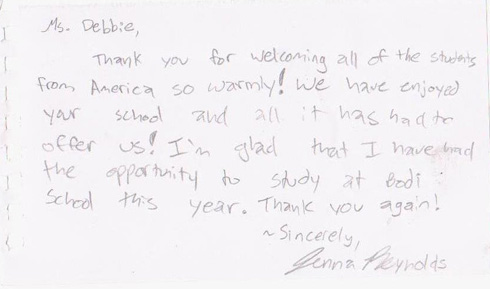 Ms. Debbie,
Thank you for welcoming all of the students
from America so warmly! We have enjoyed
your school and all it has had to
offer us! I'm glad that I have had
the opportunity to study at Bodi
School this year. Thank you again!
~ Sincerely,
Jenna Reynolds